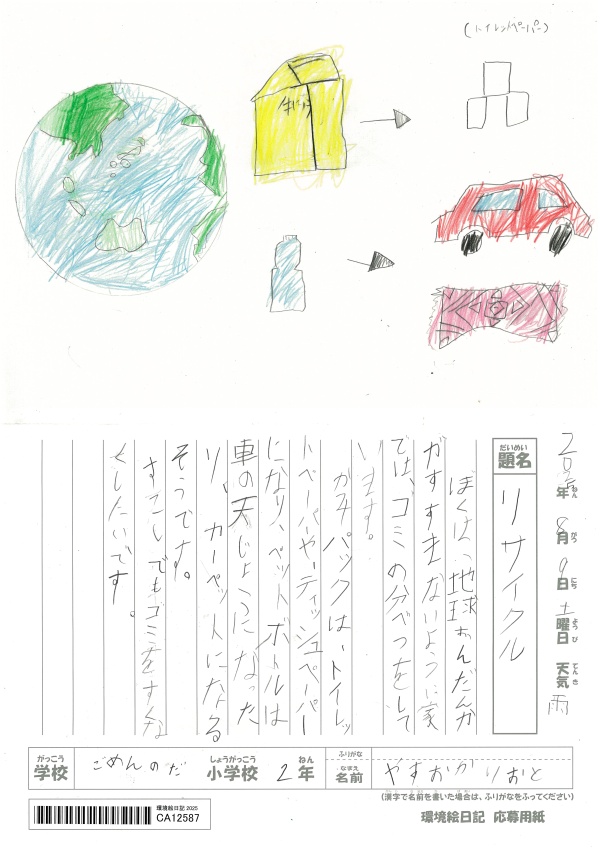 (トイレットペーパー)
2025年 8月 9日 土曜日 天気 雨
ねん がつ にち ようび てんき
だいめい
題名 リサイクル
ぼくは、地球おんだんか
がすすまないように家
では、ゴミの分べつをして
います。
かみパックは、トイレッ
トペーパーやティッシュペーパー
になり、ペットボトルは
車の天じょうになった
り、カーペットになる
そうです。
すこしでもゴミをすくな
くしたいです。
がっこう しょうがっこう ねん ふりがな
学校 ごめんのだ 小学校 2年
なまえ
名前 やすおか りおと
(漢字で名前を書いた場合は、ふりがなをふってください)
環境絵日記 2025
CA12587
環境絵日記 応募用紙